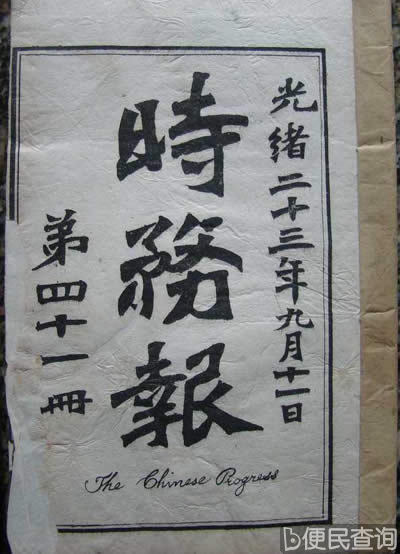 光緒二十三年九月十一日
時務報
第四十一冊
The Chinese Progress
便民查询